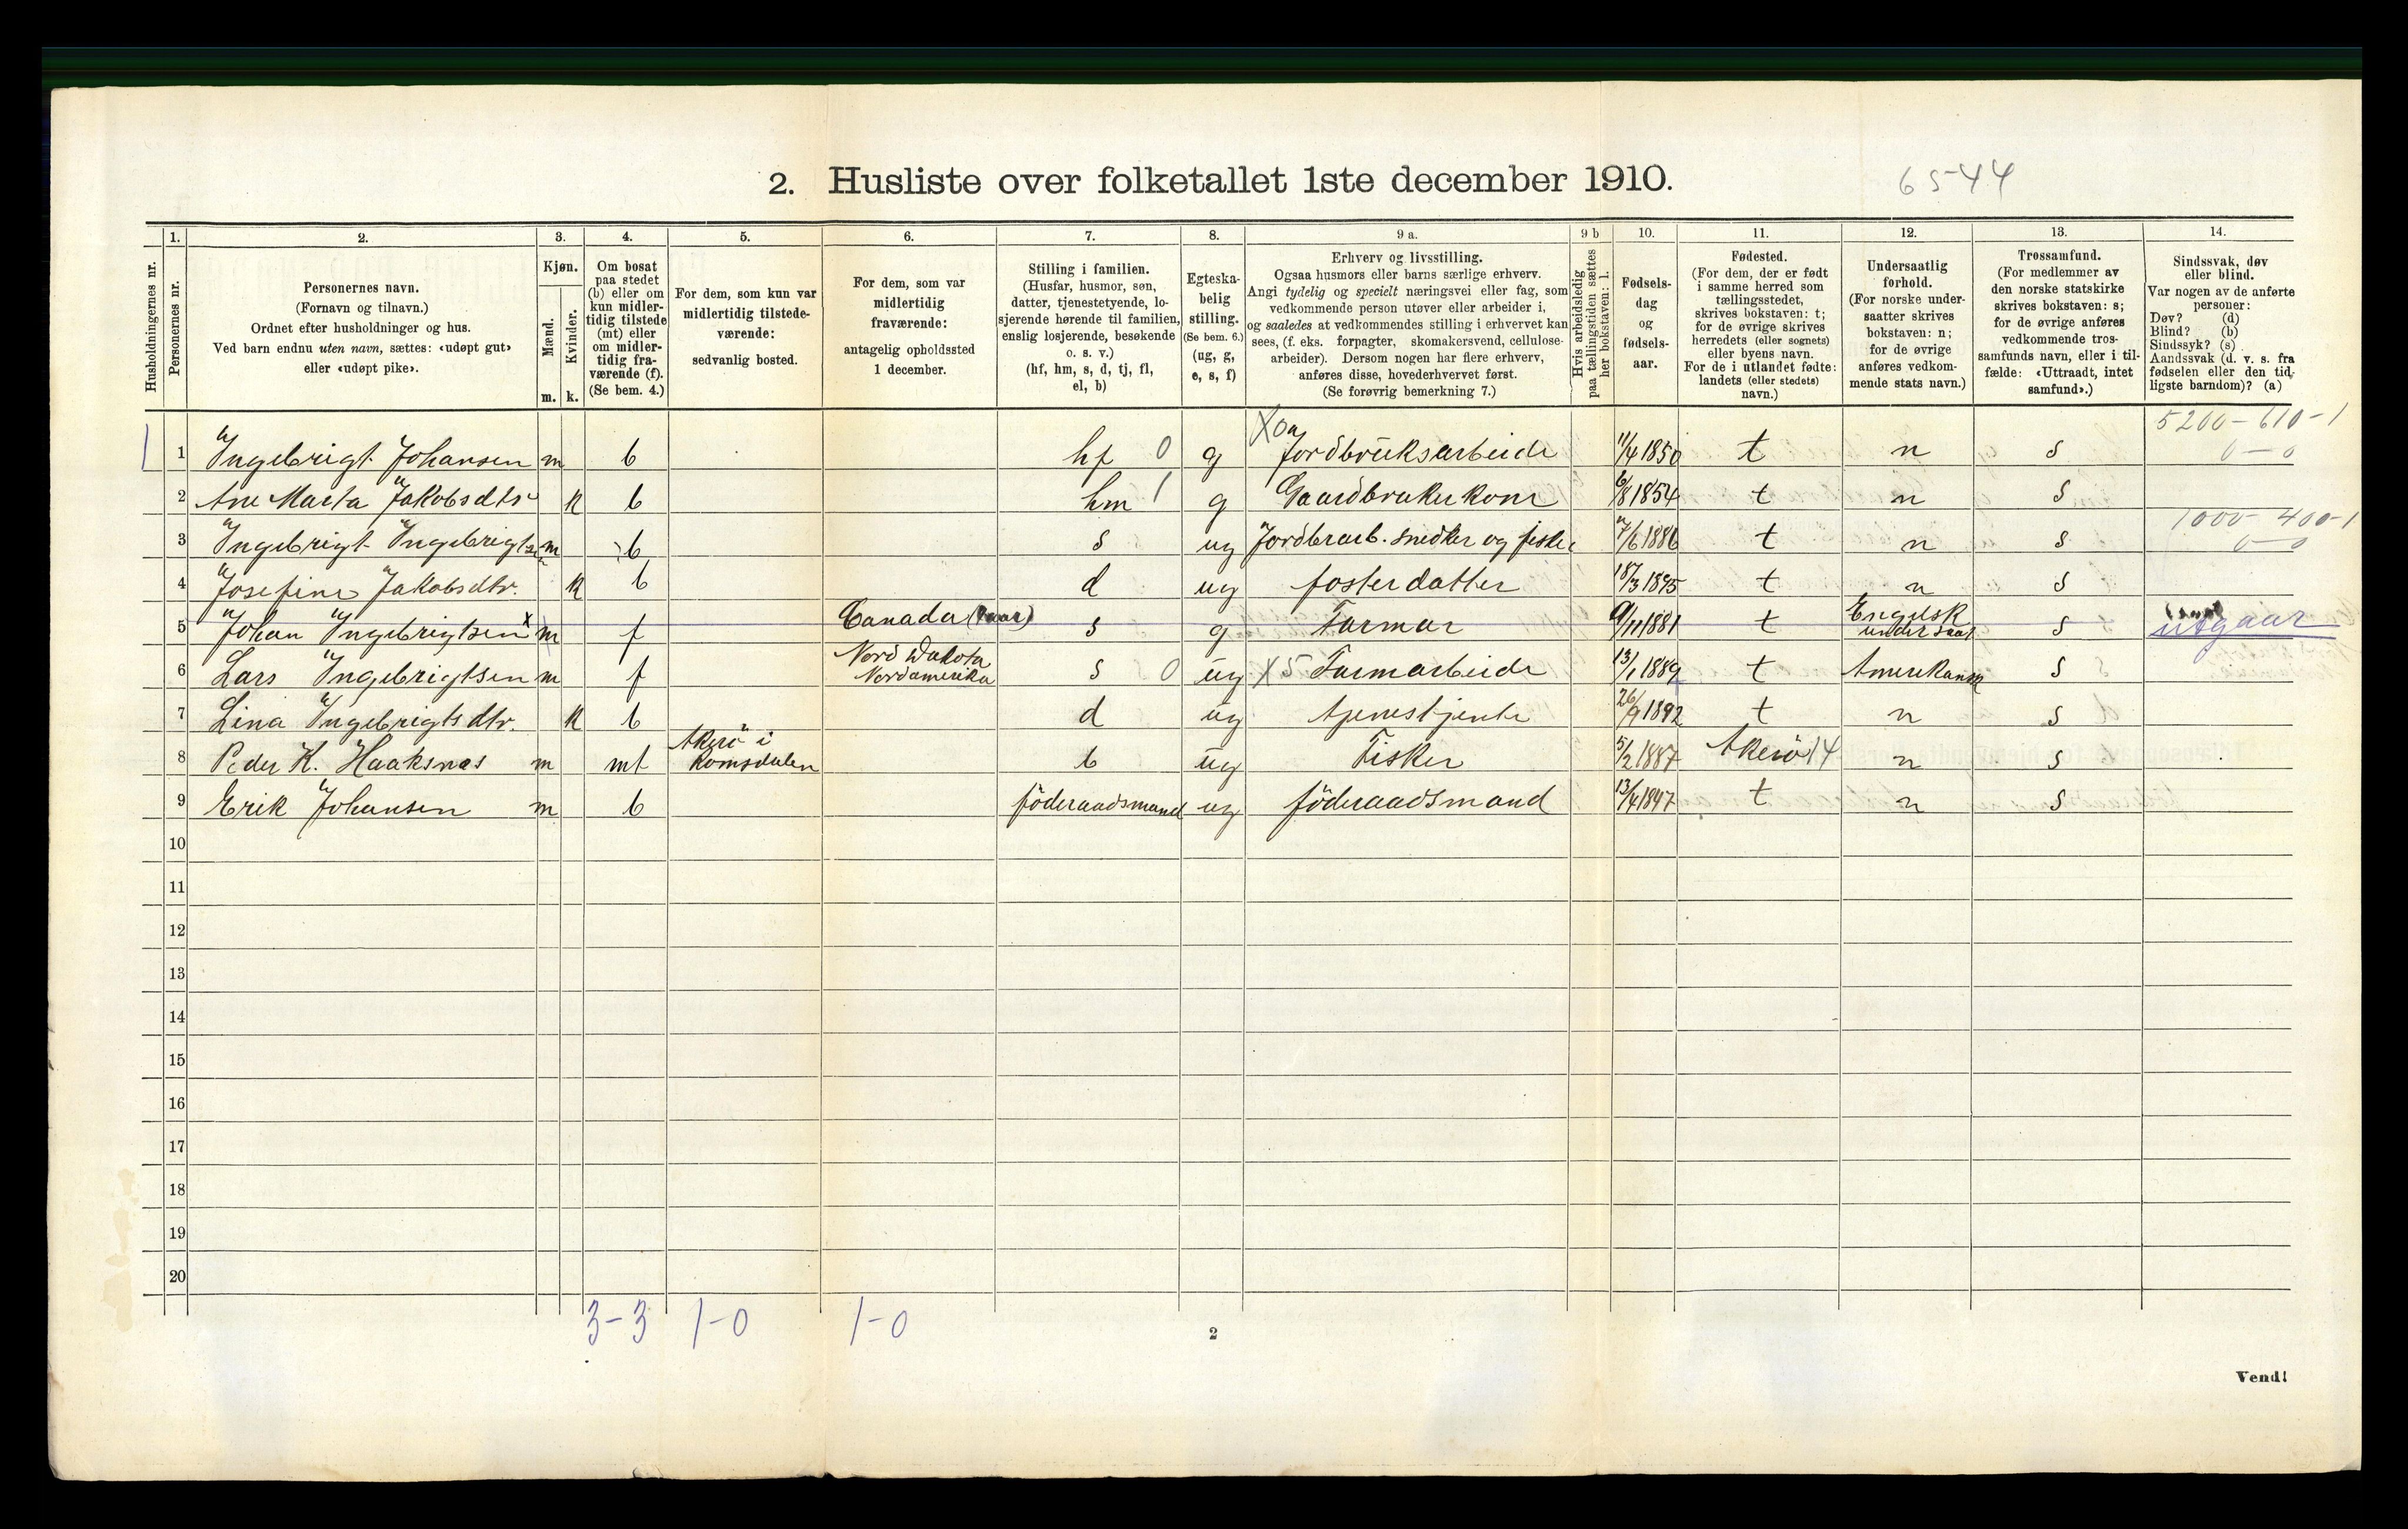 2. Husliste over folketallet 1ste december 1910.
65-44
1. 2. 3. 4. 5. 6. 7. 8. 9 a. 9 b 10. 11. 12. 13. 14.
Husholdningernes nr.
Personernes nr.
Personernes navn.
(Fornavn og tilnavn.)
Ordnet efter husholdninger og hus.
Ved barn endnu uten navn, sættes: «udøpt gut»
eller «udøpt pike».
Kjøn.
Mænd.
Kvinder.
m. k.
Om bosat
paa stedet
(b) eller om
kun midler-
tidig tilstede
(mt) eller
om midler-
tidig fra-
værende (f).
(Se bem. 4.)
For dem, som kun var
midlertidig tilstede-
værende:
sedvanlig bosted.
For dem, som var
midlertidig
fraværende:
antagelig opholdssted
1 december.
Stilling i familien.
(Husfar, husmor, søn,
datter, tjenestetyende, lo-
sjerende hørende til familien,
enslig losjerende, besøkende
o. s. v.)
(hf, hm, s, d, tj, fl,
el, b)
Egteska-
belig
stilling.
(Se bem. 6.)
(ug, g,
e, s, f)
Erhverv og livsstilling.
Ogsaa husmors eller barns særlige erhverv.
Angi tydelig og specielt næringsvei eller fag, som
vedkommende person utøver eller arbeider i,
og saaledes at vedkommendes stilling i erhvervet kan
sees, (f. eks. forpagter, skomakersvend, cellulose-
arbeider). Dersom nogen har flere erhverv,
anføres disse, hovederhvervet først.
(Se forøvrig bemerkning 7.)
Hvis arbeidsledig
paa tællingstiden sættes
her bokstaven: l.
Fødsels-
dag
og
fødsels-
aar.
Fødested.
(For dem, der er født
i samme herred som
tællingsstedet,
skrives bokstaven: t;
for de øvrige skrives
herredets (eller sognets)
eller byens navn.
For de i utlandet fødte:
landets (eller stedets)
navn.)
Undersaatlig
forhold.
(For norske under-
saatter skrives
bokstaven: n;
for de øvrige
anføres vedkom-
mende stats navn.)
Trossamfund.
(For medlemmer av
den norske statskirke
skrives bokstaven: s;
for de øvrige anføres
vedkommende tros-
samfunds navn, eller i til-
fælde: «Uttraadt, intet
samfund».)
Sindssvak, døv
eller blind.
Var nogen av de anførte
personer:
Døv? (d)
Blind? (b)
Sindssyk? (s)
Aandssvak (d. v. s. fra
fødselen eller den tid-
ligste barndom)? (a)
Xoa 5200-610-1
1 1 Ingebrigt Johansen m b hf 0 g Jordbruksarbeide 11/4 1850 t n s 0-0
2 Ane Marta Jakobsdtr k b hm 1 g Gaardbrukerkone 6/8 1854 t n s
1000-400-1
3 Ingebrigt Ingebrigtsen m b s ug Jordbrarb. snedker og fisker 7/6 1886 t n s 0-0
4 Josefine Jakobsdtr. k b d ug fosterdatter 18/3 1895 t n s
5 Johan Ingebrigtsen x m f Canada s g Farmar 9/11 1881 t Engelsk undersaat s utgaar
6 Lars Ingebrigtsen m f Nord Dakota Nordamerika s 0 ug X5 Farmarbeide 13/1 1889 t Amerikansk s
7 Lina Ingebrigtsdtr. k b d ug tjenestjente 26/9 1892 t n s
8 Peder K. Haaksnes m mt Akerö i Romsdalen b ug Fisker 5/2 1887 Akerö 14 n s
9 Erik Johansen m b föderaadsmand ug föderaadsmand 13/4 1847 t n s
10
11
12
13
14
15
16
17
18
19
20
3-3 1-0 1-0
2
Vend!